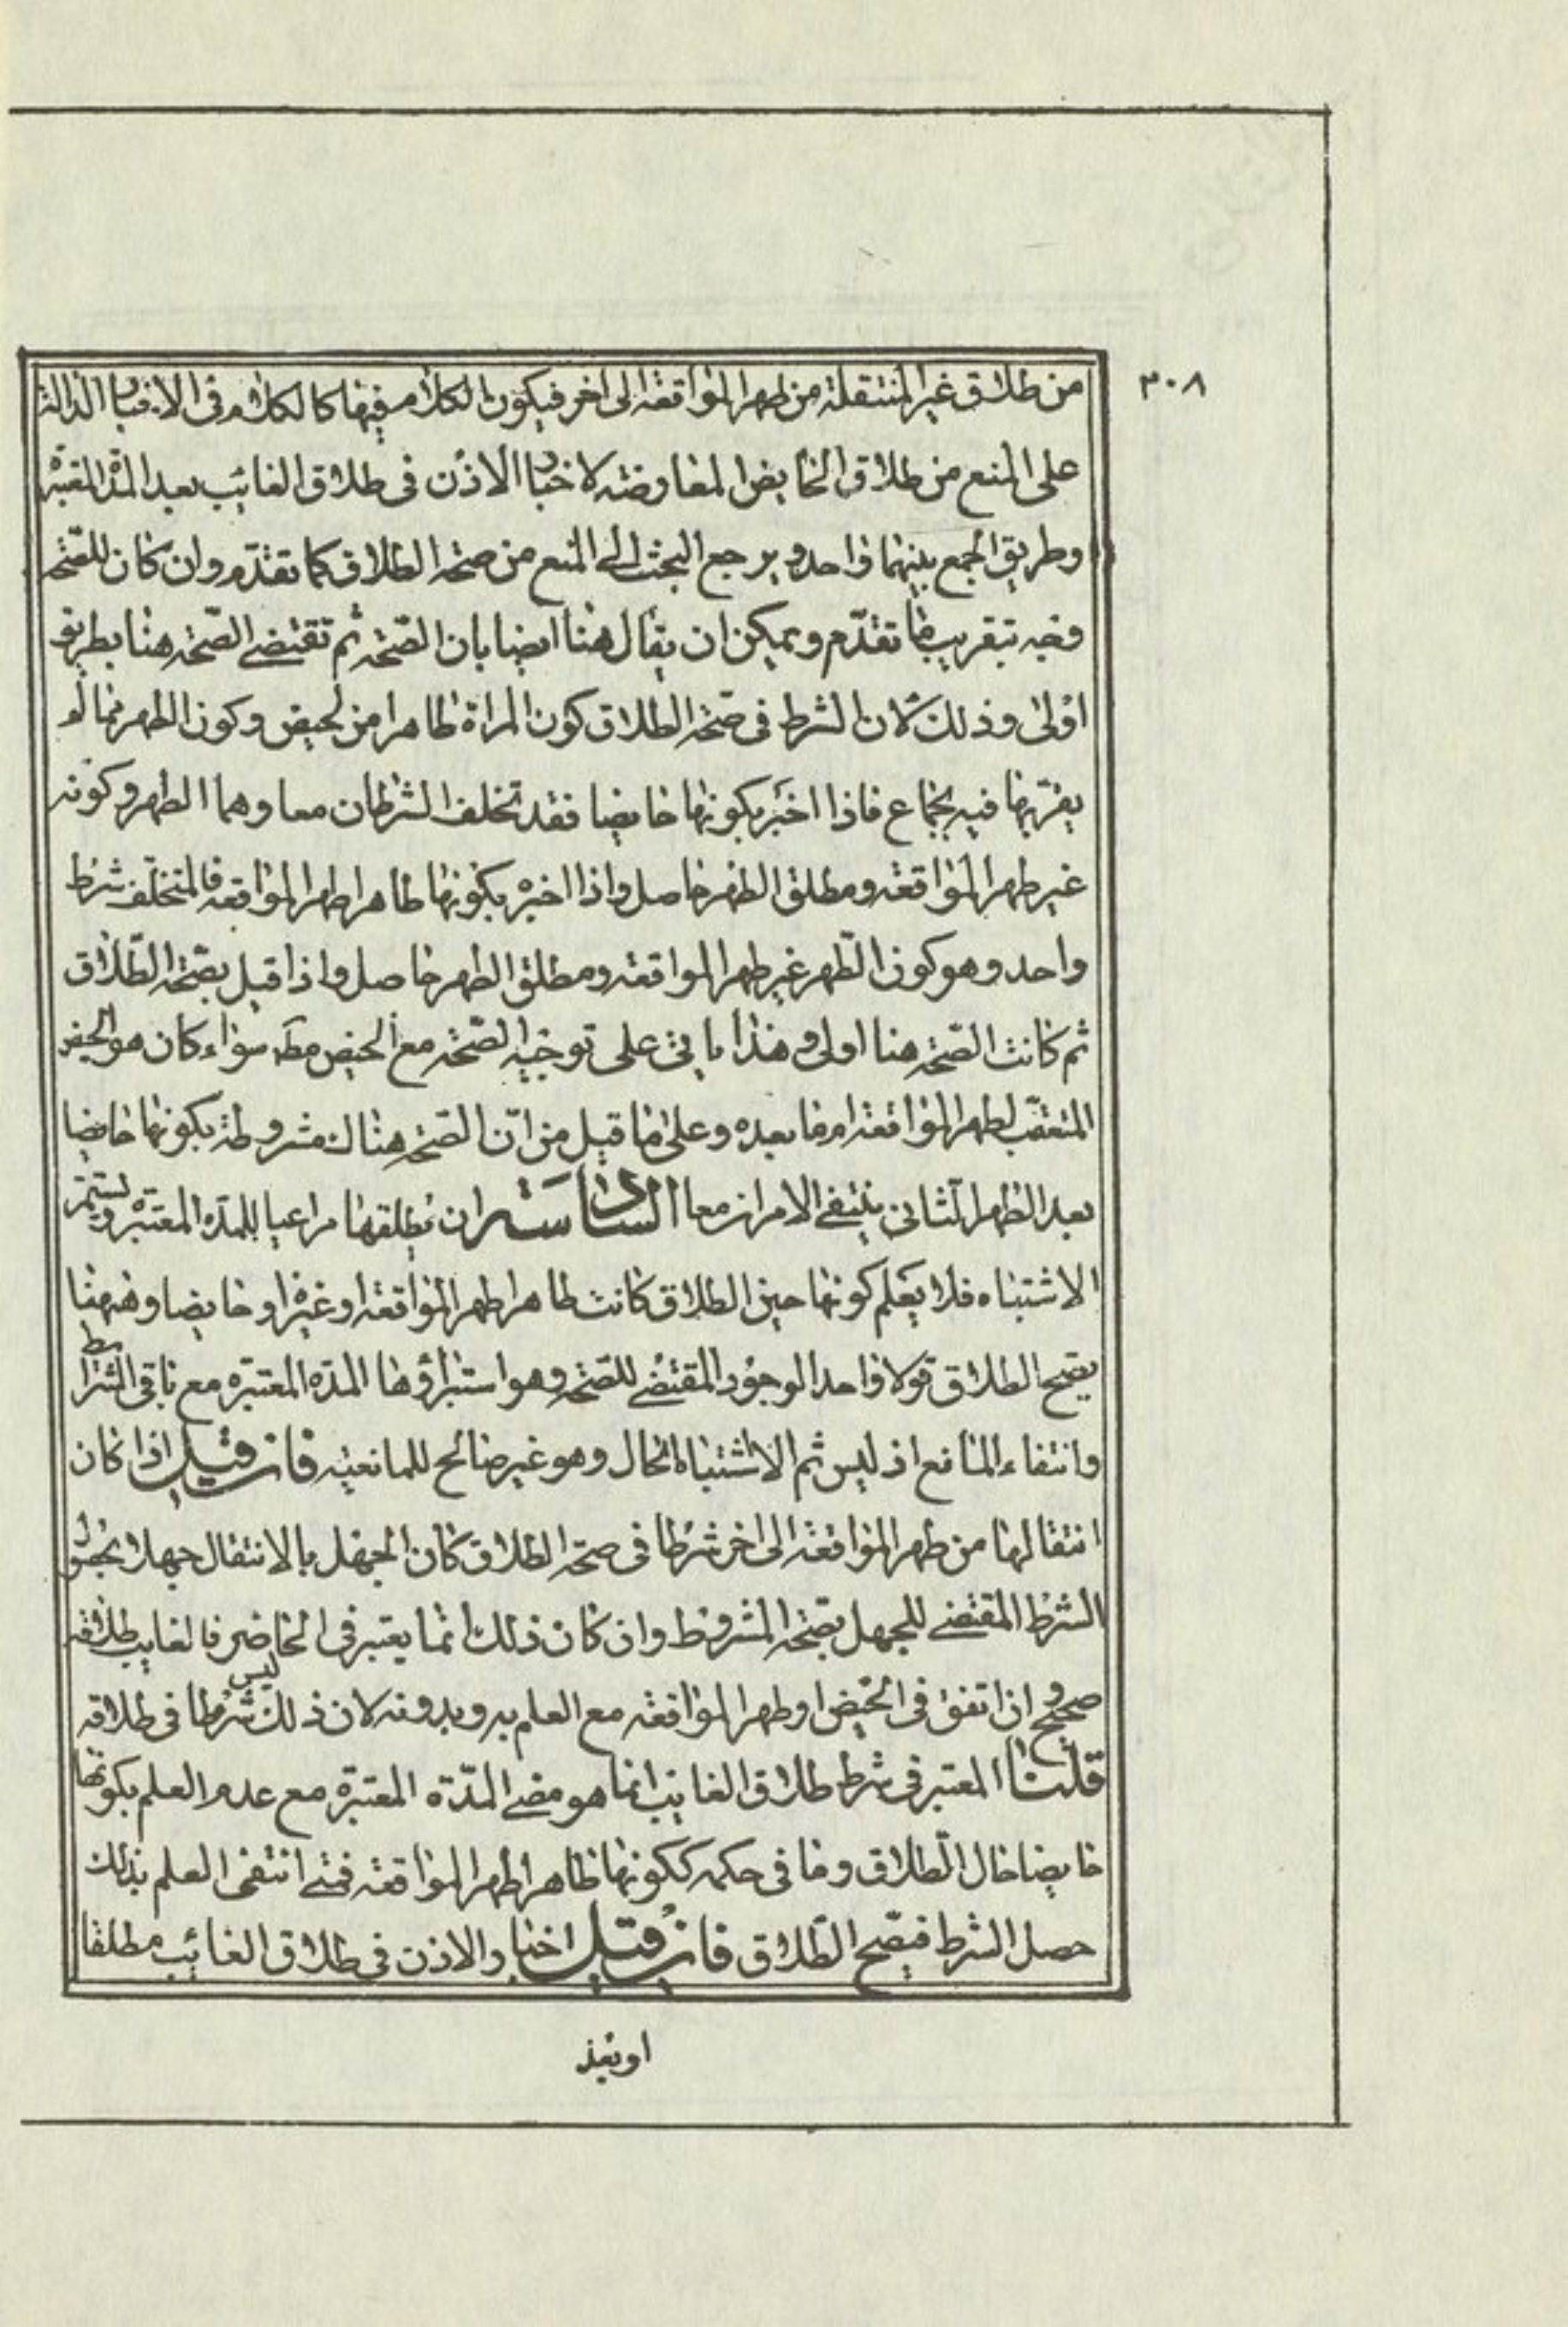 ٣٠٨
من طلاق غير المنتقلة من طهر المواقعة الى اخر فيكون الكلام فيها كالكلام في الاخبار الدالة
على المنع من طلاق الحايض المعاوضة لاخبار الاذن في طلاق الغائب بعد المدة المعتبرة
وطريق الجمع بينهما واحد ويرجع البحث الى المنع من صحة الطلاق كما تقدّم وان كان للصّحة
وجه بتقريب ما تقدّم ويمكن ان يقال هنا ايضا بان الصّحة ثم تقتضي الصّحة هنا بطريق
اولى وذلك لان الشرط في صحّة الطلاق كون المراة طاهرا من الحيض وكون الطهر مما لم
يقربها فيه بجماع فاذا اخبر بكونها حايضا فقد تخلف الشرطان معا وهما الطهر وكونه
غير طهر المواقعة ومطلق الطهر حاصل واذا اخبره بكونها طاهرا طهر المواقعة فالمتخلّف شرط
واحد وهو كون الطّهر غير طهر المواقعة ومطلق الطهر حاصل واذا قيل بصّحة الطّلاق
ثم كانت الصّحة هنا اولى وهذا ياتي على توجيه الصّحة مع الحيض مط سواء كان هو الحيض
المتعقّب لطهر المواقعة ام ما بعده وعلى ما قيل من انّ الصّحة هناك مشروطة بكونها حايضا
بعد الطهر الثاني ينتفي الامران معا السادسة ان يطلقها مراعيا للمدّة المعتبرة ويستمر
الاشتباه فلا يعلم كونها حين الطلاق كانت طاهرا طهر المواقعة او غيره او حايضا وههنا
يصح الطلاق قولا واحدا لوجود المقتضي للصّحة وهو استبراؤها المدّة المعتبرة مع باقي الشرائط
وانتفاء المانع اذ ليس ثم الا اشتباه الحال وهو غير صالح للمانعيّة فان قيل اذا كان
انتقالها من طهر المواقعة الى اخر شرطا في صحّة الطلاق كان الجهل بالانتقال جهلا بحصول
الشرط المقتضي للجهل بصّحة المشروط وان كان ذلك انما يعتبر في الحاضر فالغايب طلاقه
صحيح وان اتفق في الحيض او طهر المواقعة مع العلم به وبدونه لان ذلك ليس شرطا في طلاقه
قلنا المعتبر في شرط طلاق الغايب انما هو مضي المدّة المعتبرة مع عدم العلم بكونها
حايضا حال الطّلاق وما في حكمه ككونها طاهرا طهر المواقعة فمتى انتفى العلم بذلك
حصل الشرط فيصّح الطّلاق فان قيل اخبار الاذن في طلاق الغائب مطلقا